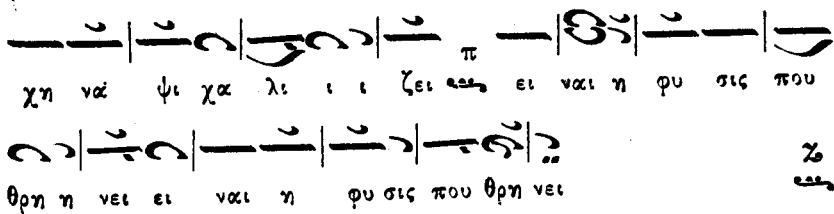 χη να ψι χα λι ι ι ζει π ει ναι η φυ σις που
θρη η νει ει ναι η φυ σις που θρη νει